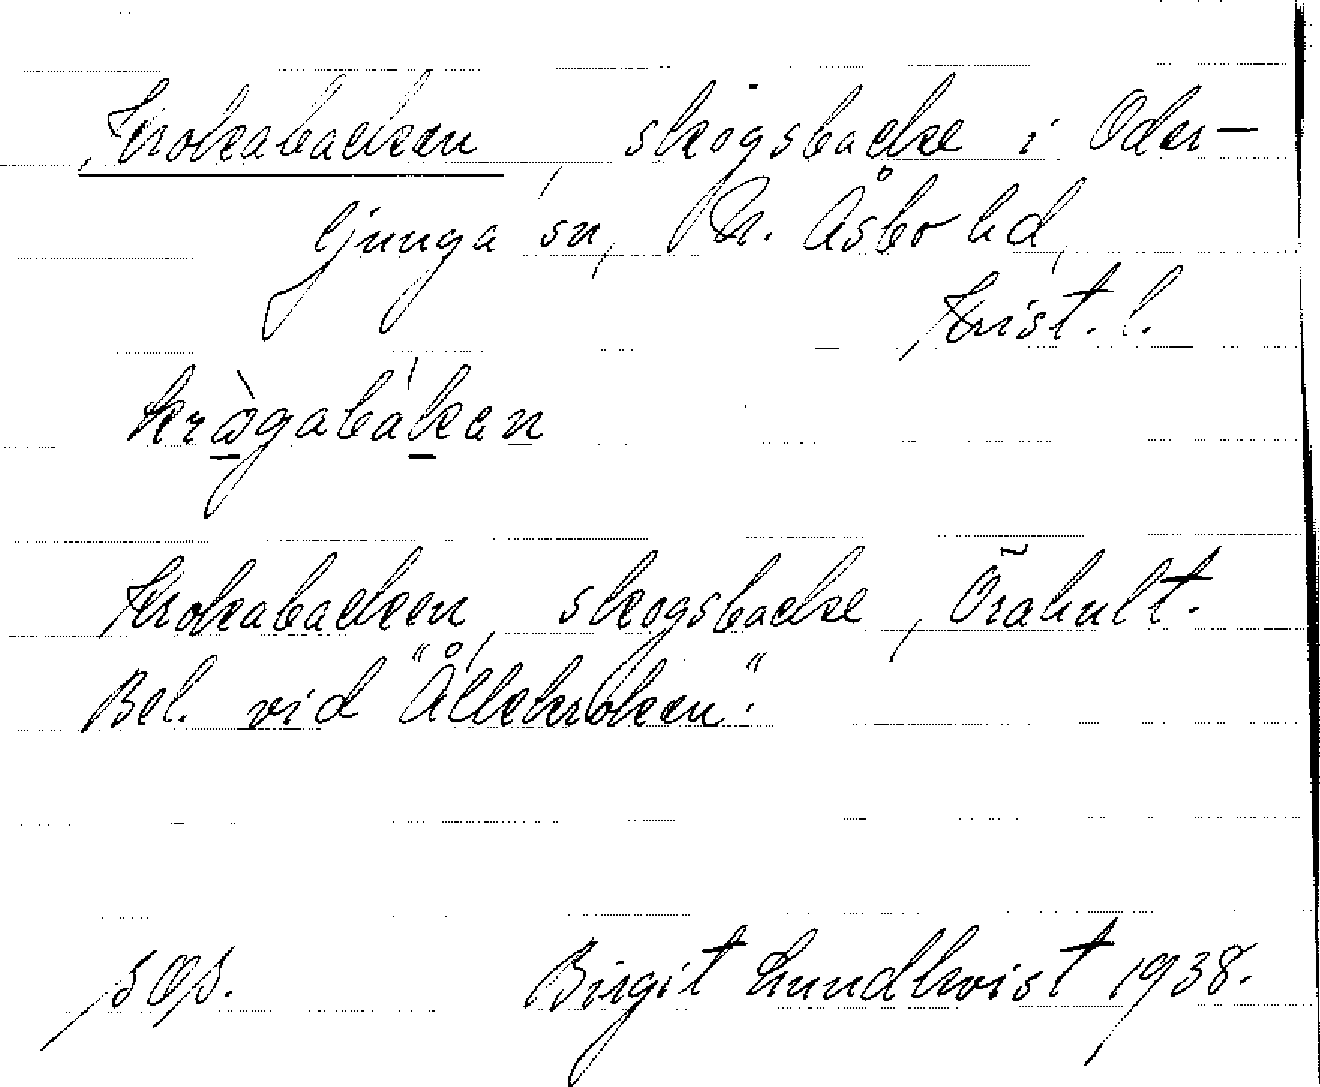 Krokabacken, skogsbacke i Oder-
ljunga sn, N. Åsbo hd,
Krist. l.
krògabàkan
Krokabacken, skogsbacke, Örahult.
Bel. vid "Ållekroken".
sqs. Birgit Lundkvist 1938.